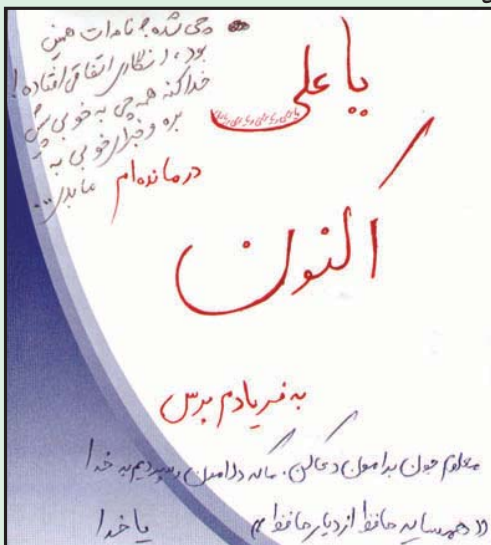 چی شده؟ نامه‌ات همین
بود، انگاری اتفاقی افتاده!
خدا کنه همه چی به خوبی پیش
بره و خبرای خوبی به
ما بدی...
یا علی
یا علی یا علی یا علی یا علی
درمانده‌ام
اکنون
به فریادم برس
معلوم جون برامون دعا کن. ما که دلامون و سپردیم به خدا
«همسایه حافظ از دیار حافظ»
یا خدا